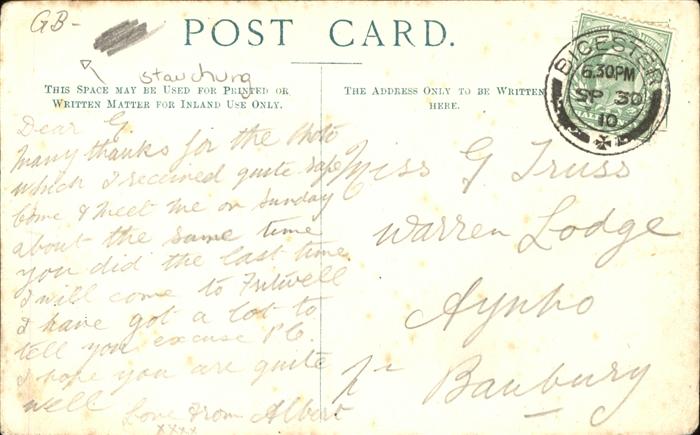 GB-
POST CARD.
Stauchung
THIS SPACE MAY BE USED FOR PRINTED OR
WRITTEN MATTER FOR INLAND USE ONLY.
THE ADDRESS ONLY TO BE WRITTEN
HERE.
BICESTER
6.30PM
SP 30
10
Dear G.
Many thanks for the Photo
which I received quite safe
Come & meet me on Sunday
about the same time
you did the last time
I will come to Fritwell
I have got a lot to
tell you excuse P.C.
I hope you are quite
well Love from Albert
xxxx
Miss G Truss
Warren Lodge
Aynho
Nr Banbury